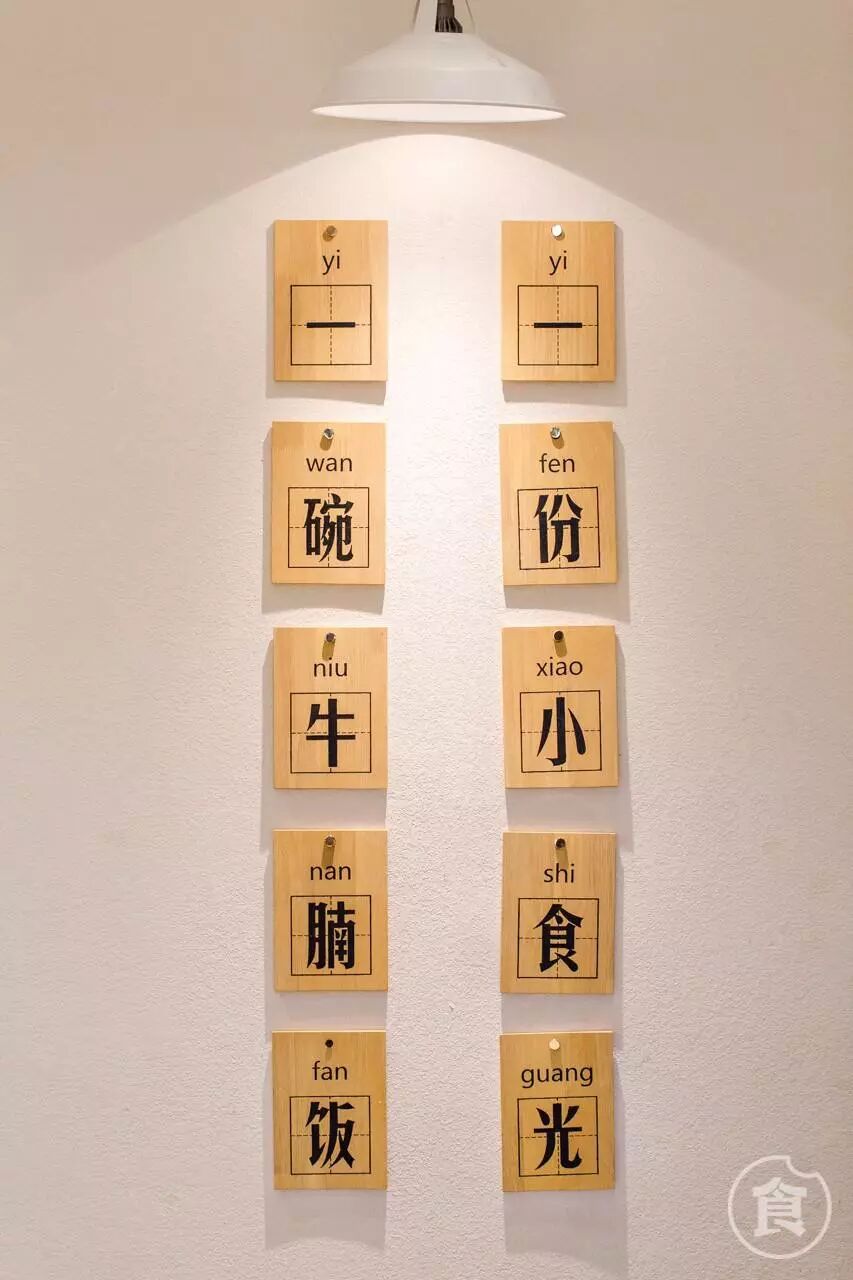 yi
一
wan
碗
niu
牛
nan
腩
fan
饭
yi
一
fen
份
xiao
小
shi
食
guang
光
食